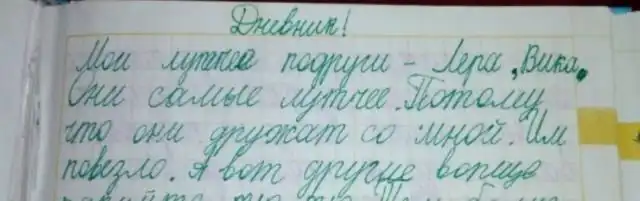 Дневник!
Мои лутчеа подруги - Лера, Вика.
Они самые лутчее. Потому
что они дружат со мной. Им
повезло. А вот другие вопще